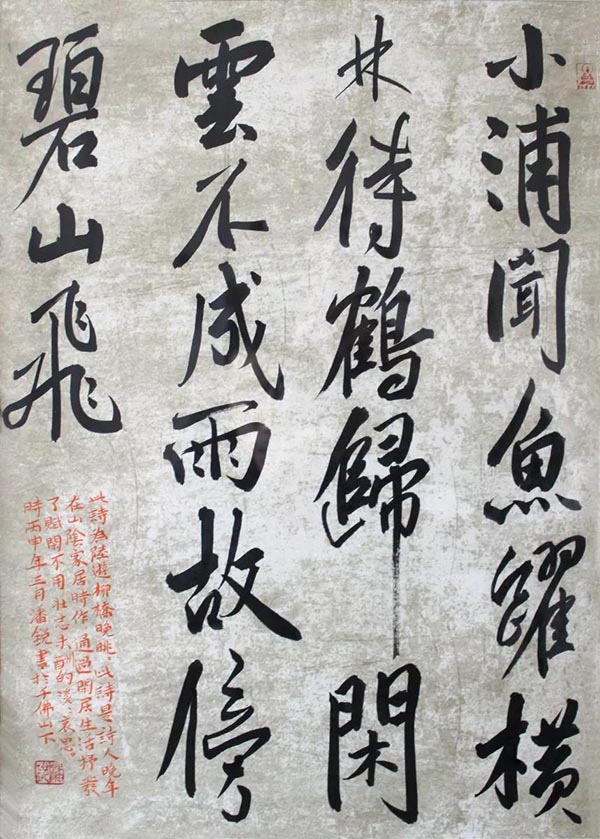 小浦聞魚躍橫
林待鶴歸閑
雲不成雨故傍
碧山飛
此詩為陸遊柳橋晚眺，此詩是詩人晚年
在山陰家居時作，通過閑居生活抒發
了賦閑不用壯志未酬的淡淡哀思。
時丙申年三月潘銳書於千佛山下